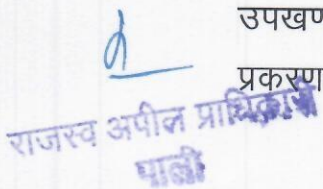 उपखण
प्रकरण
राजस्व अपील प्राधिकारी
पाली